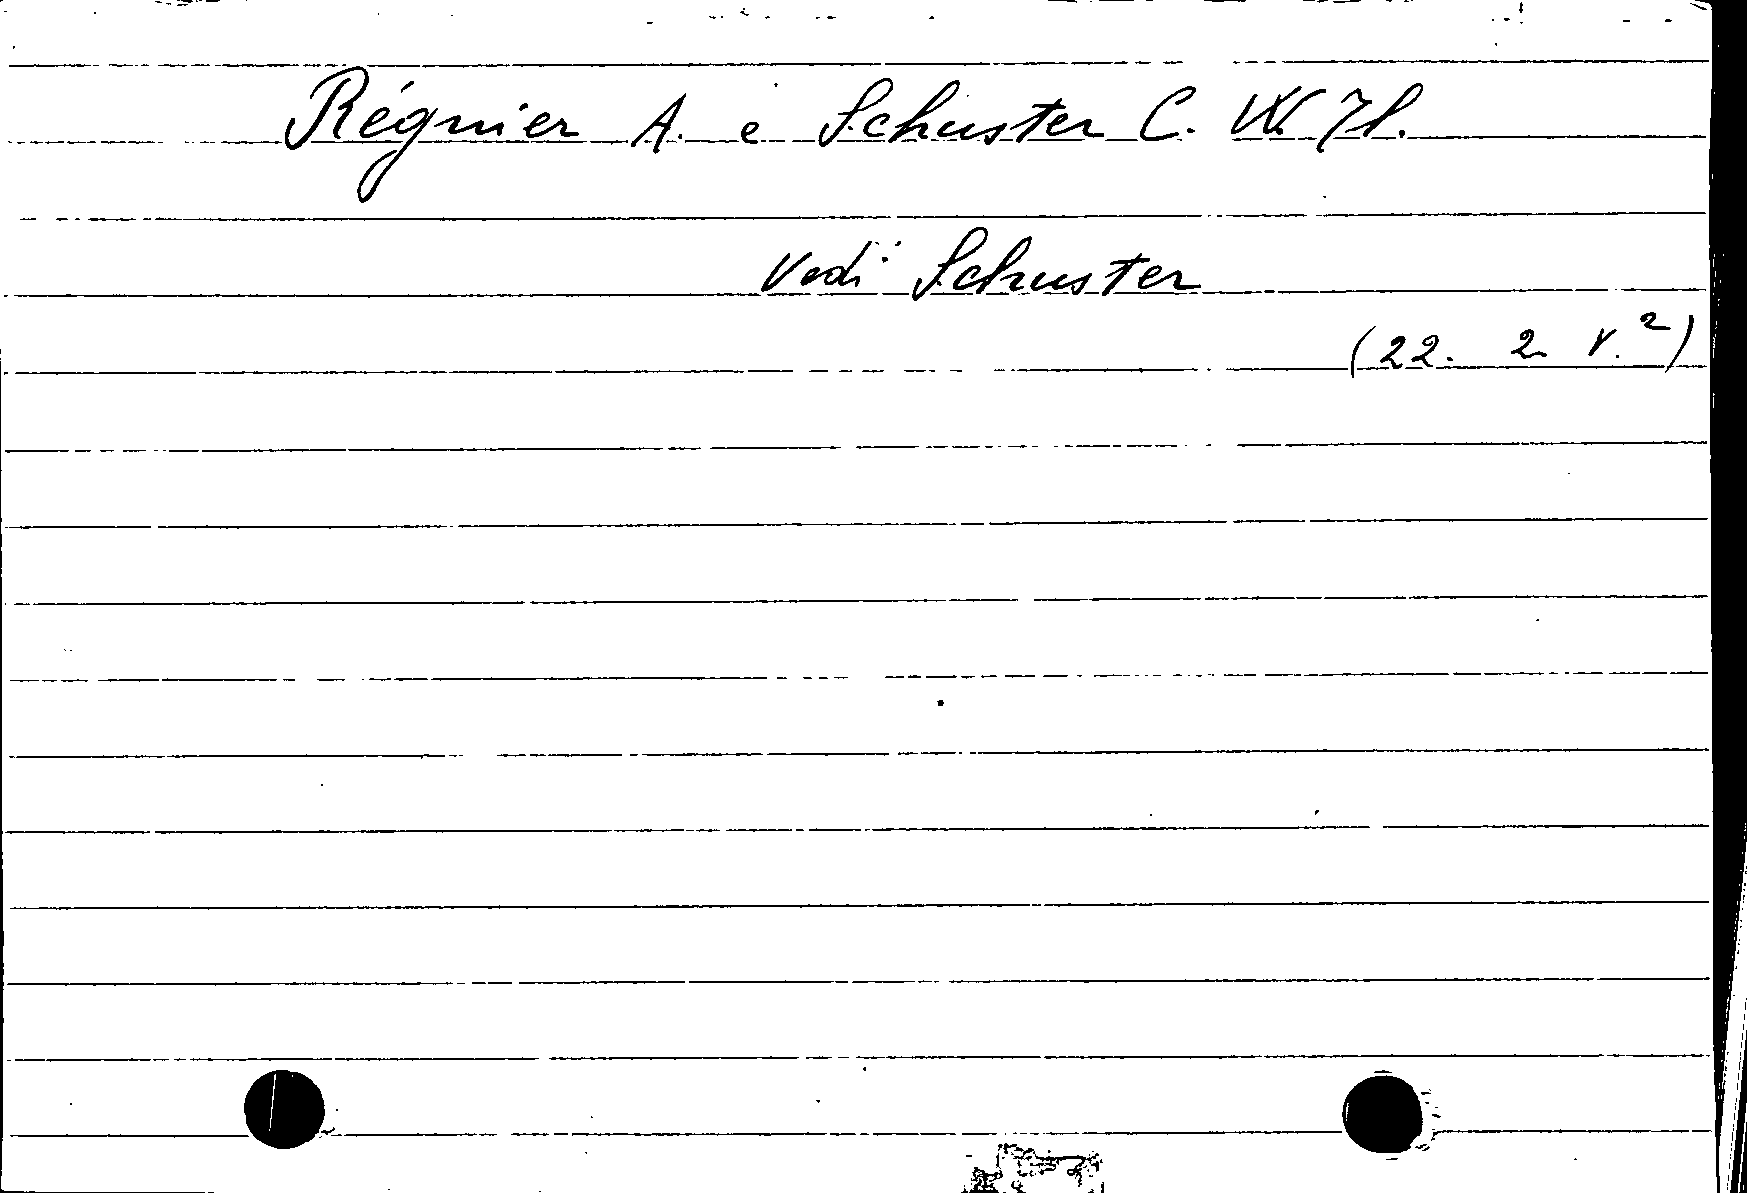 Régnier A. e Schuster C. W. H.
vedi Schuster
(22. 2. V.²)